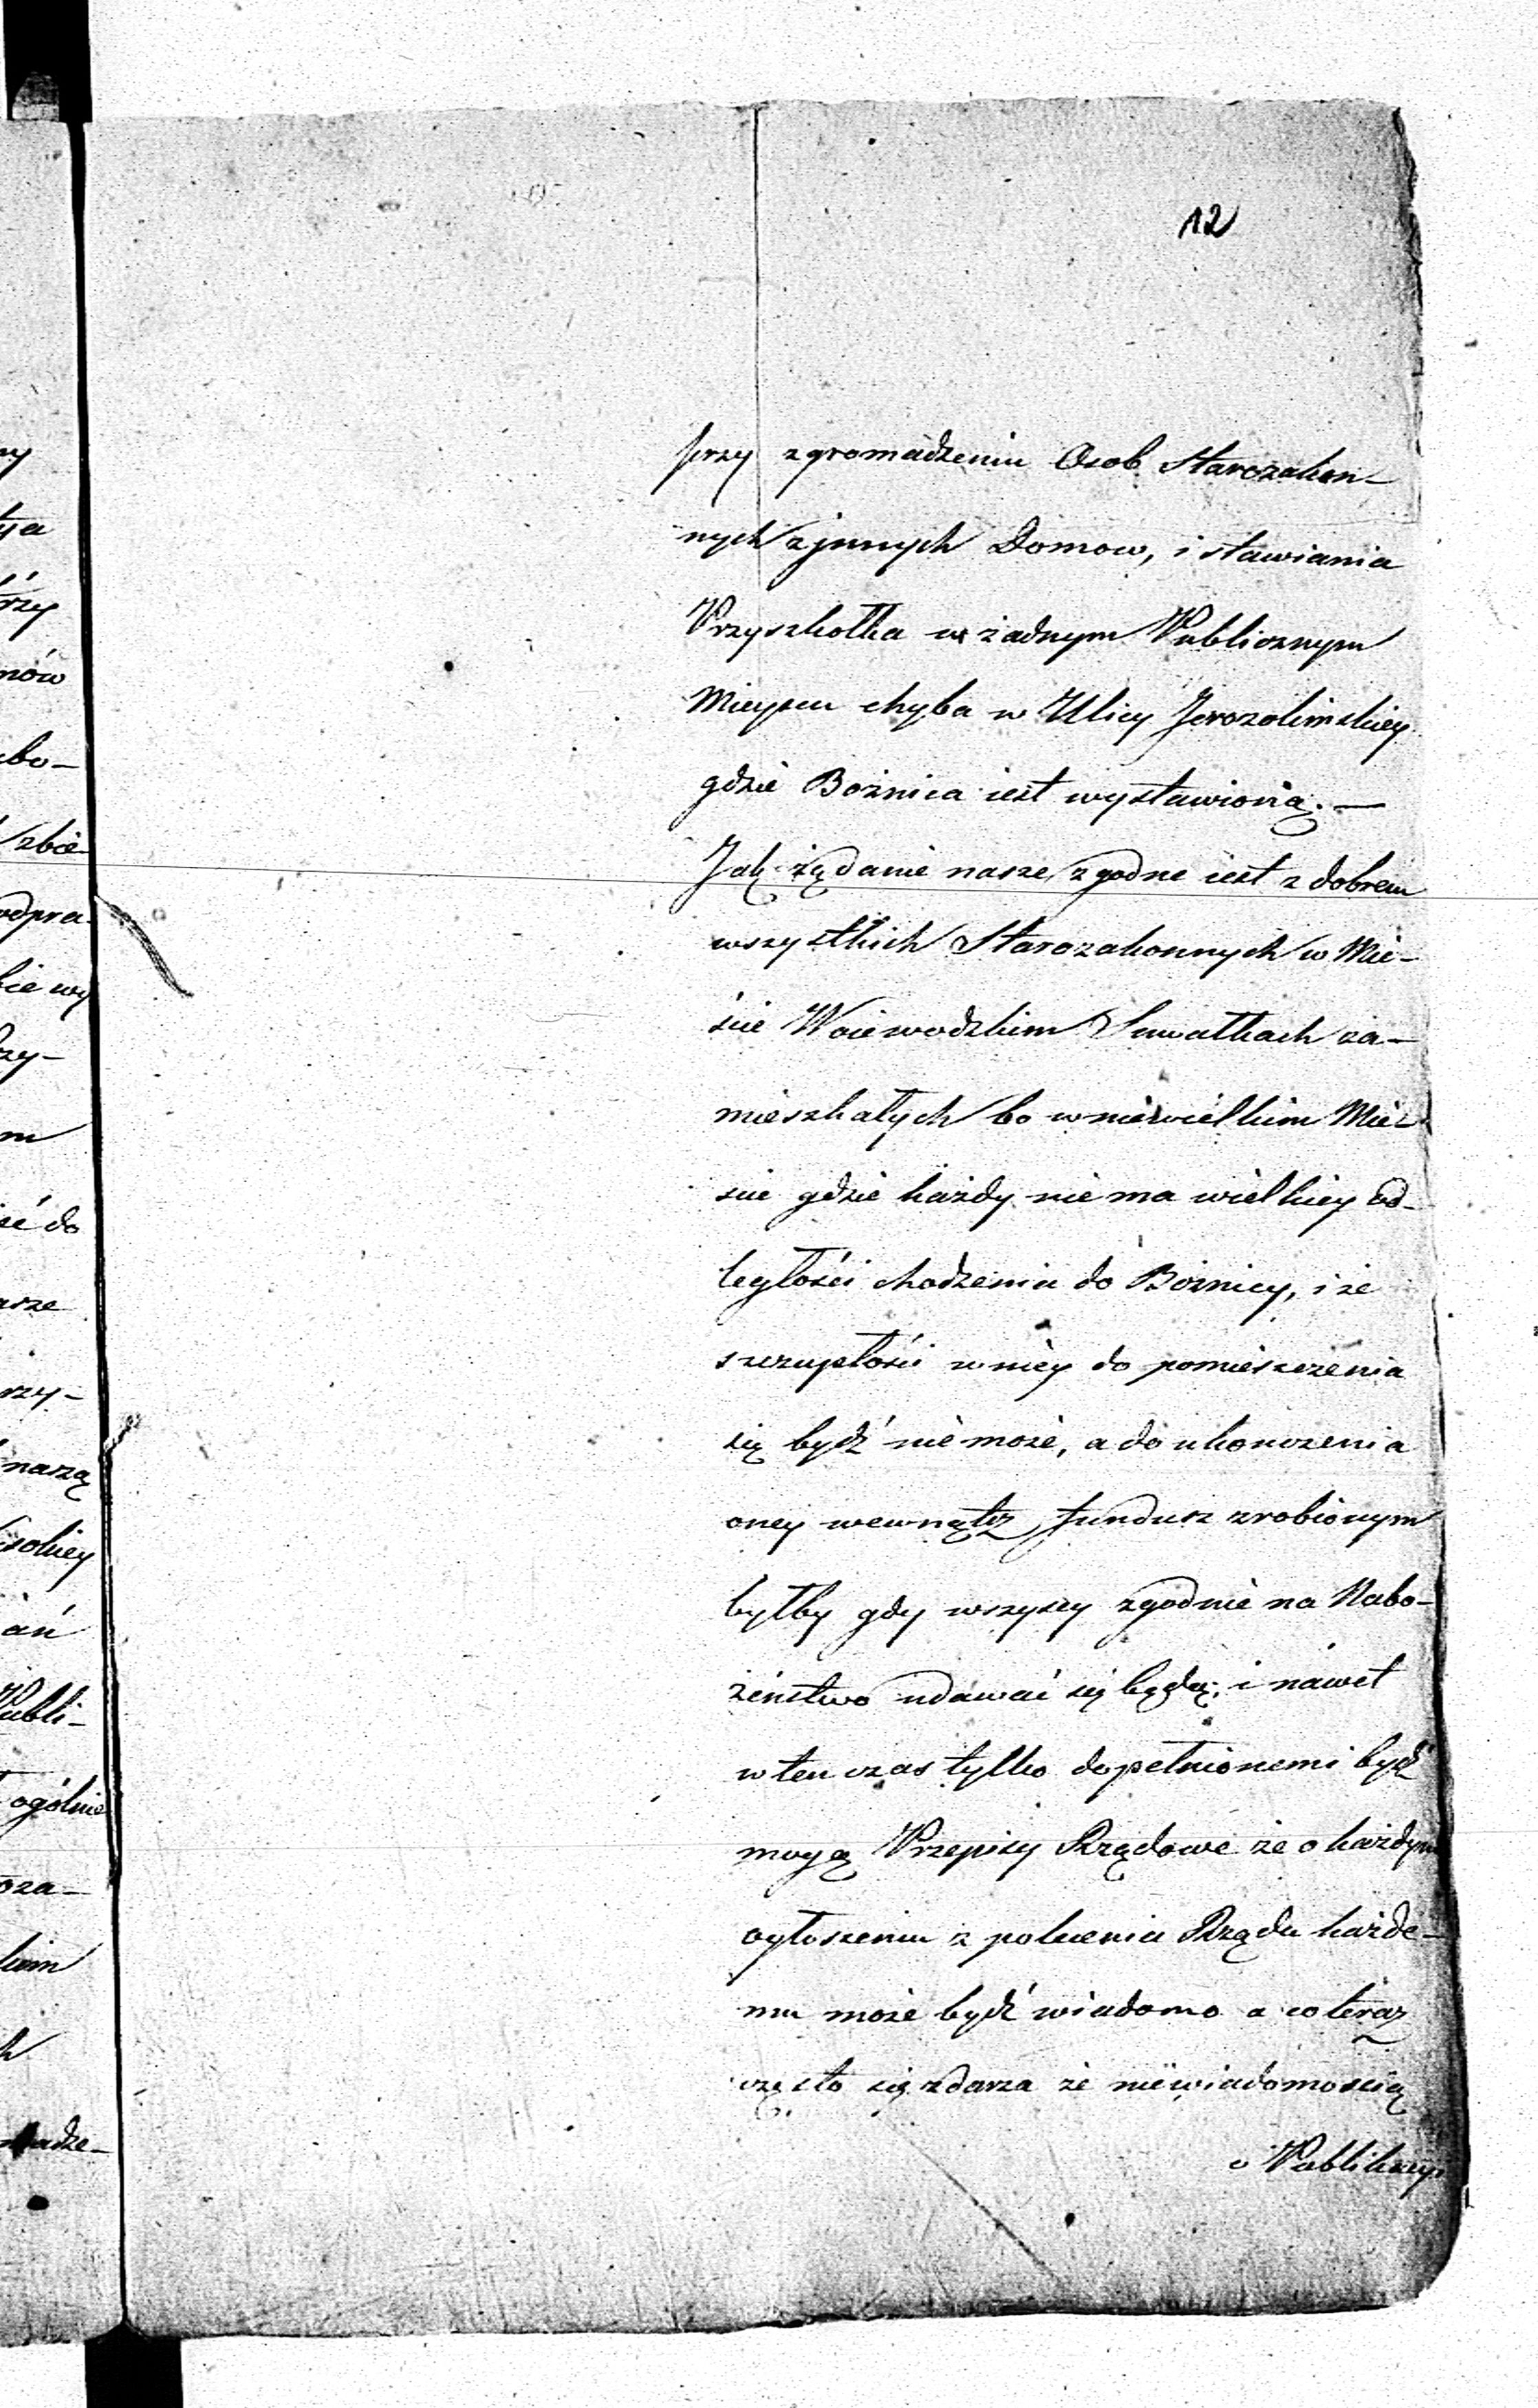 12
przy zgromadzeniu Osob Starozakon-
nych z jnnych Domow, i stawiania
Przyszkołka w żadnym Publicznym
Mieyscu chyba w Ulicy Jerozolimskiey
gdzie Bożnica iest wystawioną. —
Jak żądanie nasze zgodne iest z dobrem
wszystkich Starozakonnych w Mie-
ście Woiewodzkim Suwałkach za-
mieszkałych bo w niewielkim Mie-
scie gdzie każdy nie ma wielkiey od-
ległości chodzenia do Bożnicy, i że
szczupłości w niéy do pomieszczenia
się bydź nie może, a do ukonczenia
oney wewnątrz fundusz zrobionym
byłby gdy wszyscy zgodnie na Nabo-
żeństwo udawać się będą; i nawet
w ten czas tylko dopełnionemi bydź
mogą Przepisy Rządowe że o każdym
ogłoszeniu z polecenia Rządu każde-
mu może bydź wiadomo a co teraz
często się zdarza że niewiadomością
o Publikacy
ny
tya
rzy
mów
abo-
zbie-
odpra-
bie wy
rzy-
m
ść do
asze
rzy-
naszą
solney
ań
Publi-
ogólnie
oza-
kim
h
madze-